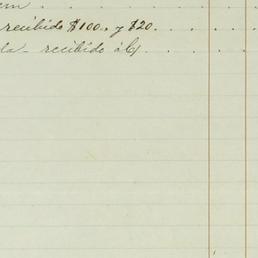 em . . . . . . . .
recibido $100.. y $20. . . . .
da - recibido á C/ . . . . .